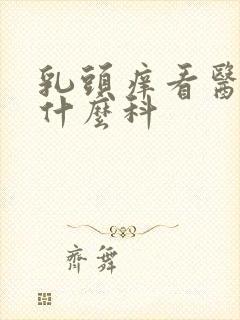 乳頭痒看醫
什麼科
齊舞